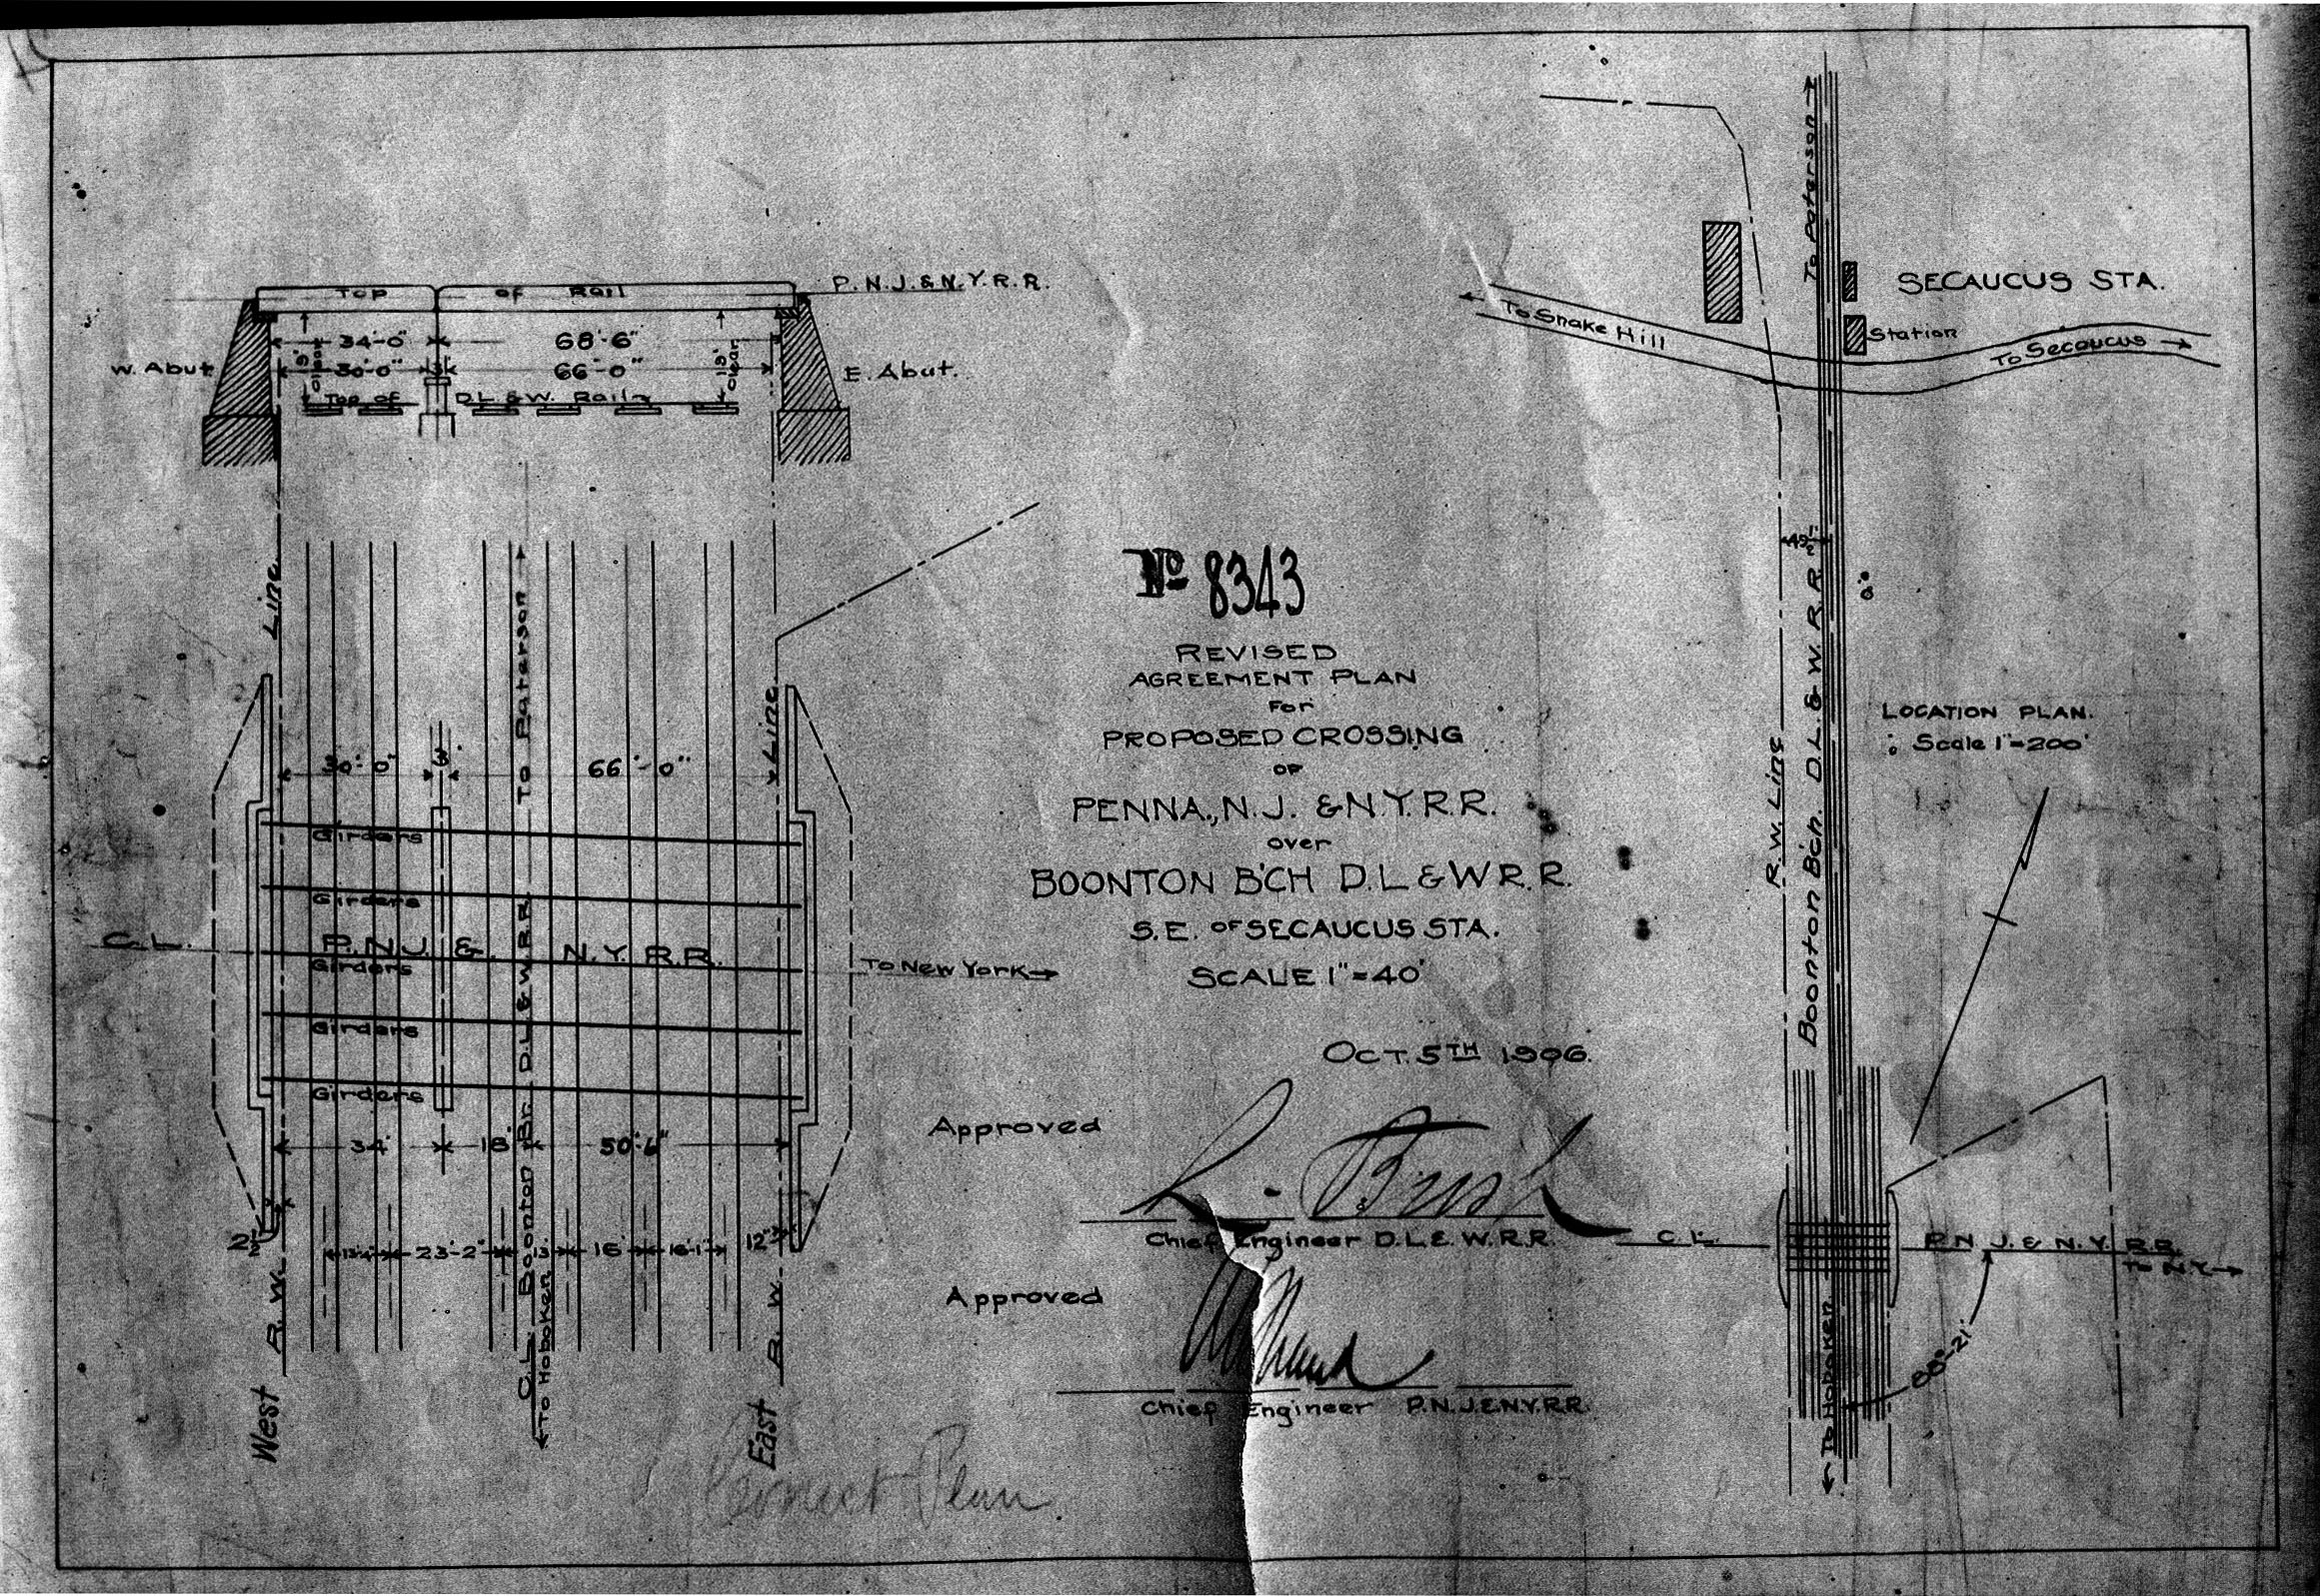 P.N.J.&N.Y.R.R.
Top of Rail
34'-0" 68'-6"
30'-0" 3' 66'-0"
18' Clear
W. Abut. E. Abut.
Top of D.L.&W. Rails
Line
Line
To Paterson
30'-0" 3' 66'-0"
Girders
Girders
C.L. P.N.J. & N.Y.R.R.
Girders
To New York
Girders
Girders
34' 18' 50'-6"
2½ 23'-2" 13' 16' 16'-1" 12"
C.L. Boonton Br. D.L.&W.R.R.
To Hoboken
West R.W.
East R.W.
Correct Plan
No 8343
REVISED
AGREEMENT PLAN
For
PROPOSED CROSSING
OF
PENNA., N.J. & N.Y.R.R.
over
BOONTON B'CH D.L.&W.R.R.
S.E. OF SECAUCUS STA.
SCALE 1"=40'
OCT. 5TH 1906.
Approved
Bush
Chief Engineer D.L.&W.R.R.
Approved
Chief Engineer P.N.J.&N.Y.R.R.
To Paterson
SECAUCUS STA.
Station
To Snake Hill
To Secaucus
49½'
R.W. Line
Boonton Bch. D.L.&W.R.R.
LOCATION PLAN.
Scale 1"=200'
C.L. P.N.J.& N.Y.R.R.
To N.Y.
88°-21'
To Hoboken